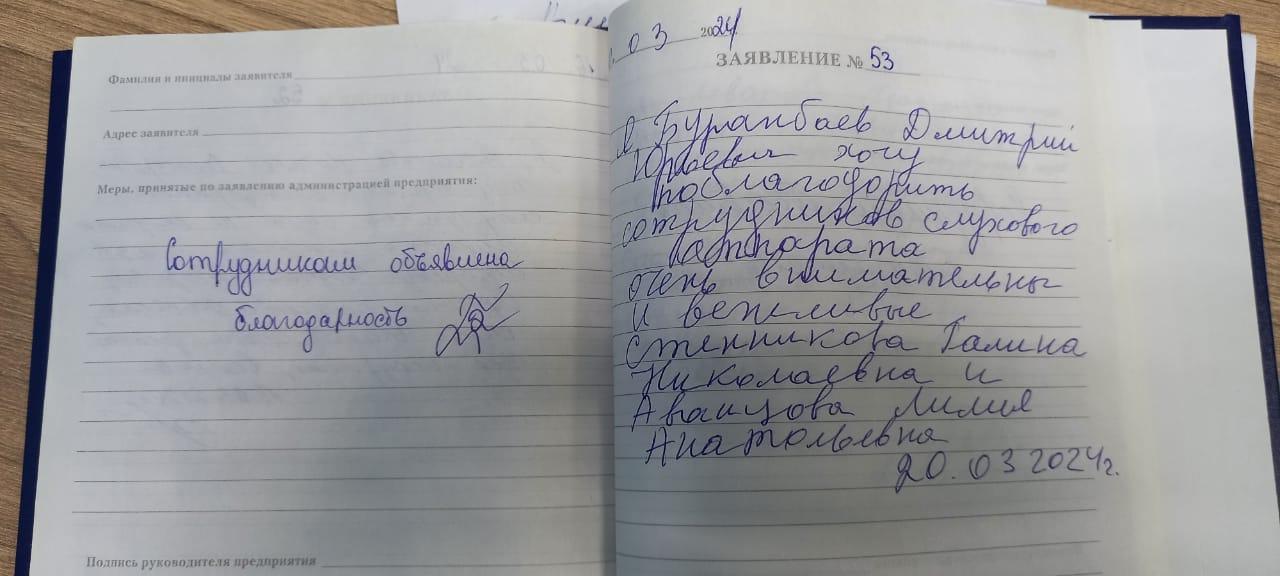 Фамилия и инициалы заявителя
Адрес заявителя
Меры, принятые по заявлению администрацией предприятия:
Сотрудникам объявлена
благодарность
Подпись руководителя предприятия
03 2024
ЗАЯВЛЕНИЕ № 53
Я, Буранбаев Дмитрий
Юрьевич хочу
поблагодорить
сотрудников слухового
аппарата
очень внимательны
и вежливые
Стенникова Галина
Николаевна и
Лилия
Анатольевна
20.03 2024г.